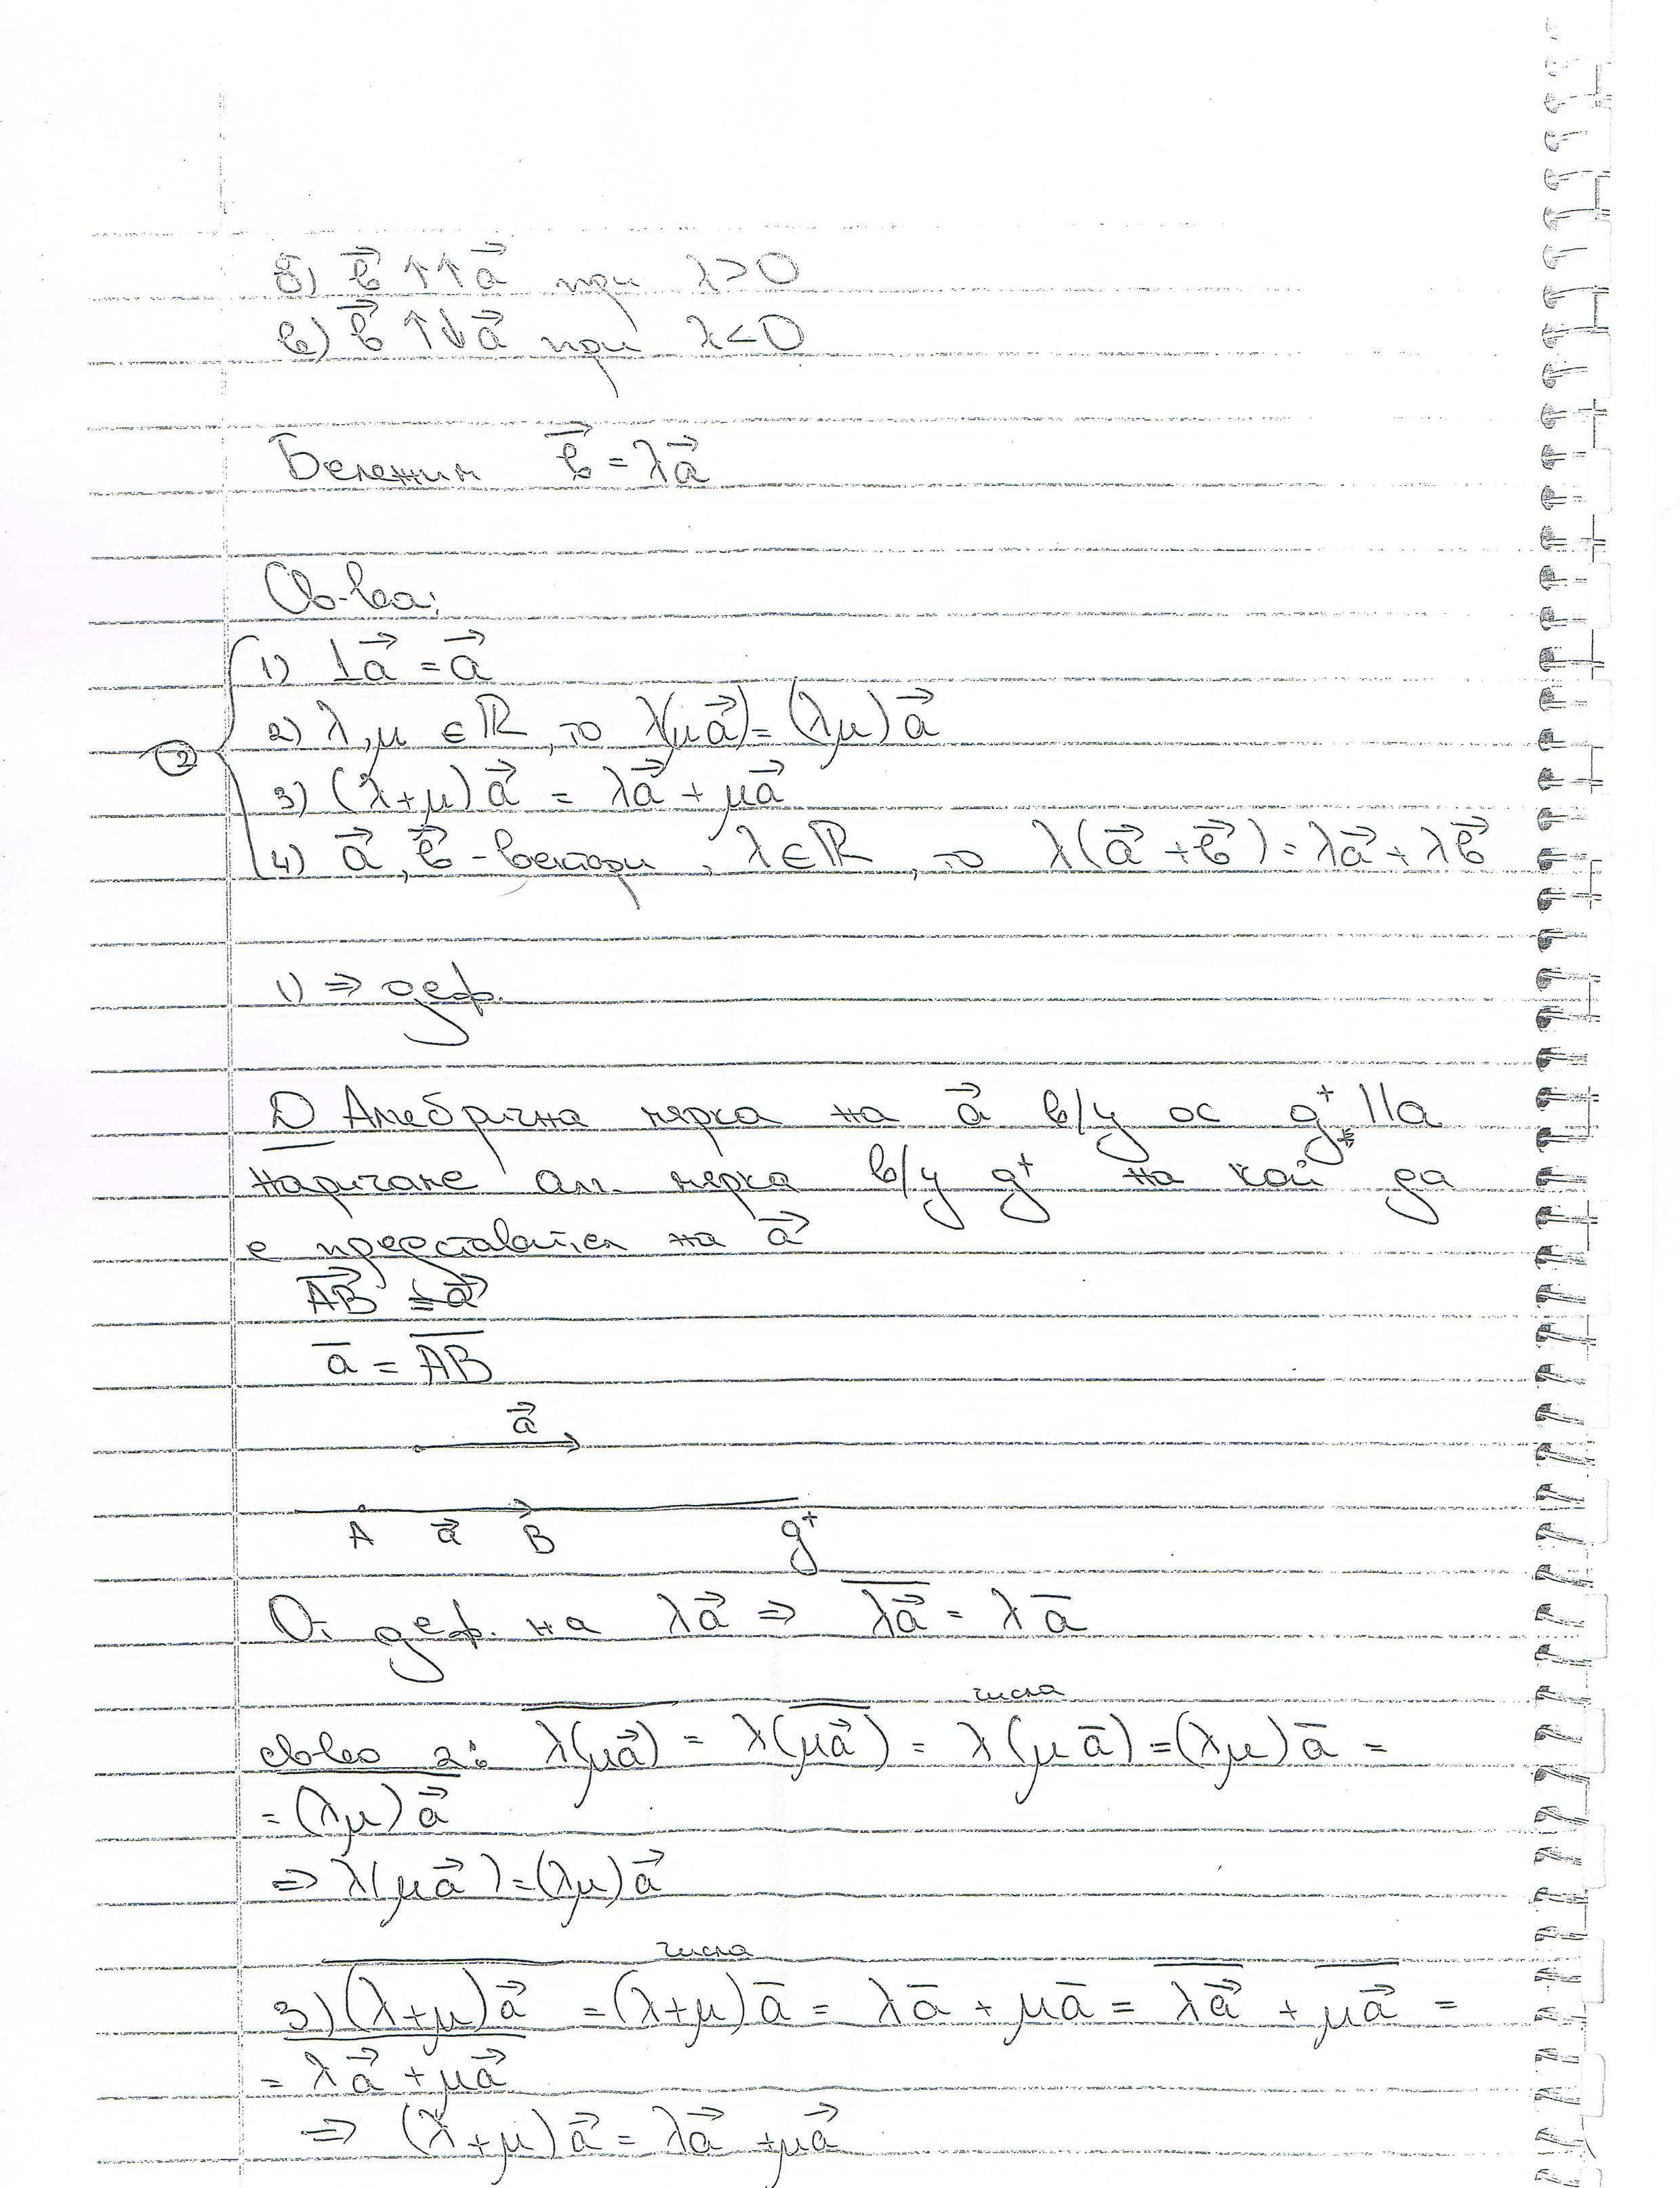 б) b⃗ ↑↑ a⃗ при λ>0
в) b⃗ ↑↓ a⃗ при λ<0
Бележим b⃗ = λa⃗
Св-ва:
1) 1a⃗ = a⃗
2) λ,μ ∈ ℝ, то λ(μa⃗) = (λμ)a⃗
②
3) (λ+μ)a⃗ = λa⃗ + μa⃗
4) a⃗, b⃗ - вектори, λ∈ℝ, то λ(a⃗+b⃗) = λa⃗ + λb⃗
1) ⇒ деф.
D Алгебрична мярка на a⃗ в/у ос g⁺ || a
наричаме алг. мярка в/у g⁺ на кой да
е представител на a⃗
A͞B⃗ = a⃗
a̅ = A̅B̅
a⃗
A a⃗ B g⁺
От деф. на λa⃗ ⇒ \overline{λa⃗} = λa̅
числа
св-во 2: \overline{λ(μa⃗)} = λ(\overline{μa⃗}) = λ(μa̅) = (λμ)a̅ =
= \overline{(λμ)a⃗}
⇒ λ(μa⃗) = (λμ)a⃗
числа
3) \overline{(λ+μ)a⃗} = (λ+μ)a̅ = λa̅ + μa̅ = \overline{λa⃗} + \overline{μa⃗} =
= \overline{λa⃗ + μa⃗}
⇒ (λ+μ)a⃗ = λa⃗ + μa⃗